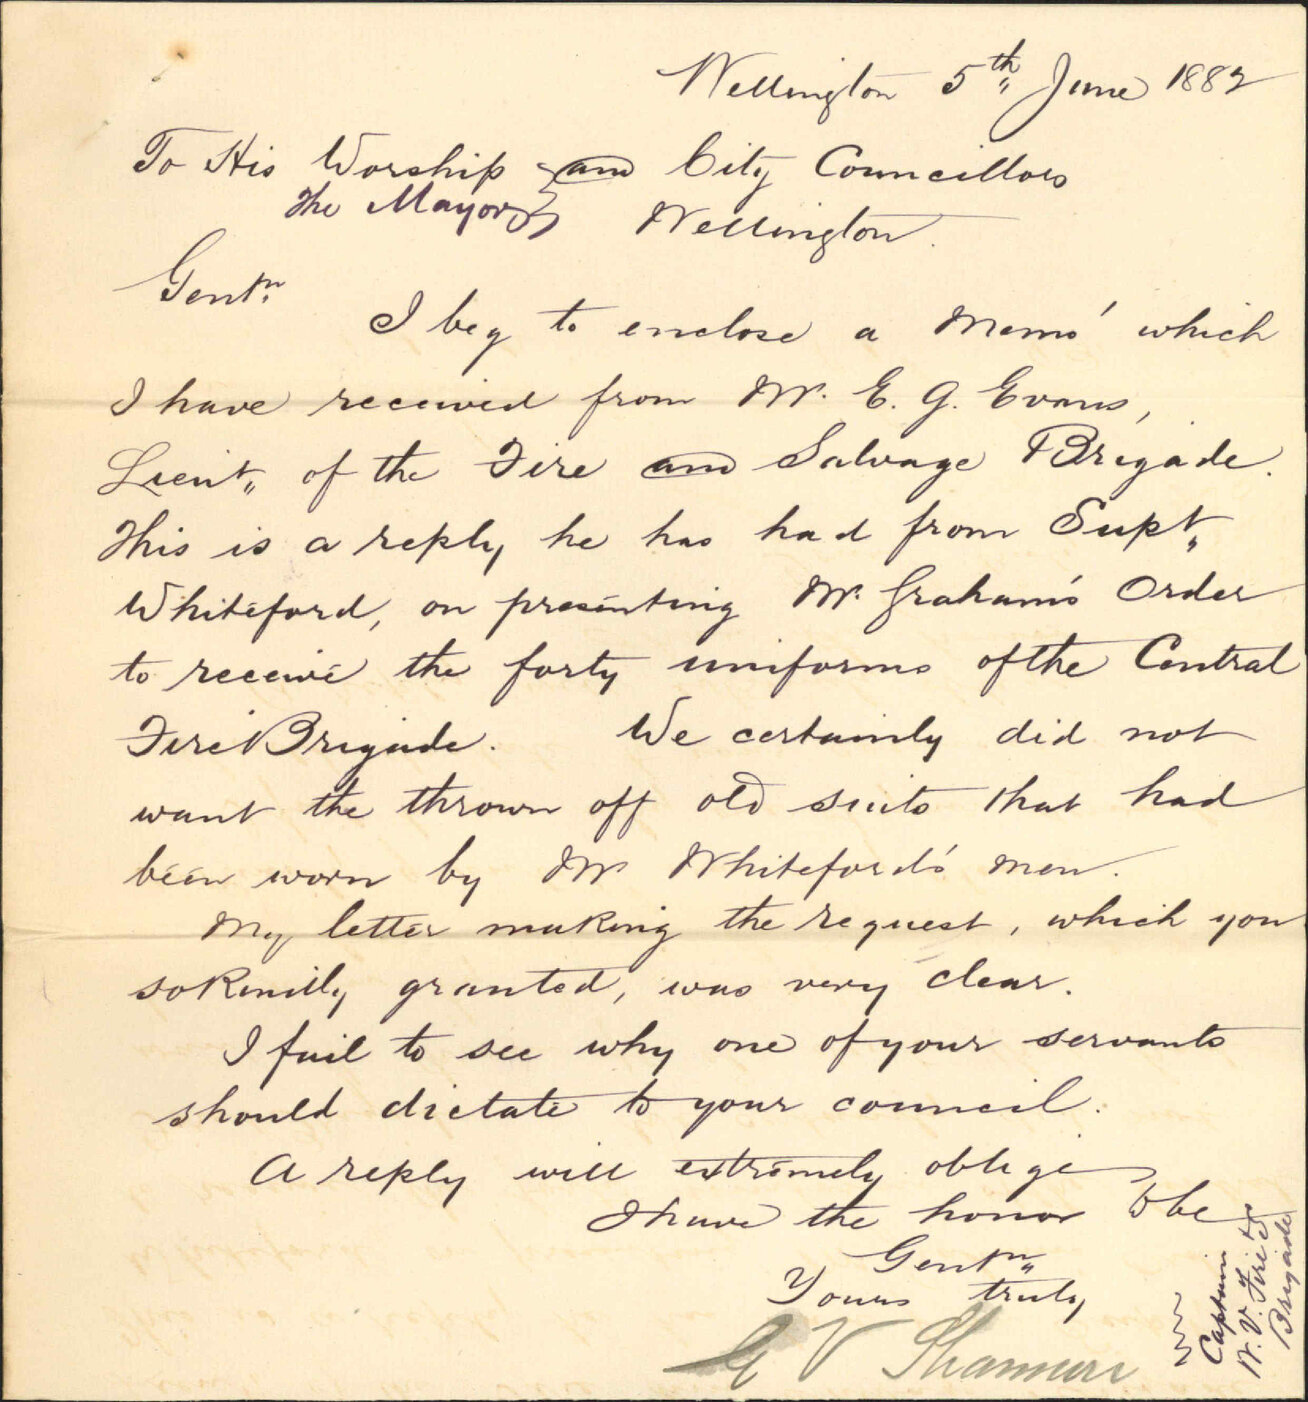 Wellington 5th June 1882
To His Worship and City Councillors
The Mayor Wellington.
Gentn.
I beg to enclose a Memo' which
I have received from Mr. E. G. Evans,
Lieut, of the Fire and Salvage Brigade.
This is a reply he has had from Supt,
Whiteford, on presenting Mr. Graham's Order
to receive the forty uniforms of the Central
Fire Brigade. We certainly did not
want the thrown off old suits that had
been worn by Mr Whiteford's men.
My letter making the request, which you
so kindly granted, was very clear.
I fail to see why one of your servants
should dictate to your council.
A reply will extremely oblige
I have the honor to be
Gentn
Yours truly
G V Shannon
Captain
W. V. Fire &
Brigade